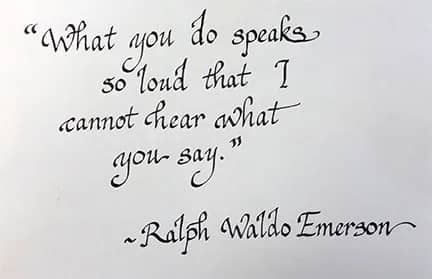 “What you do speaks
so loud that I
cannot hear what
you say.”
~Ralph Waldo Emerson